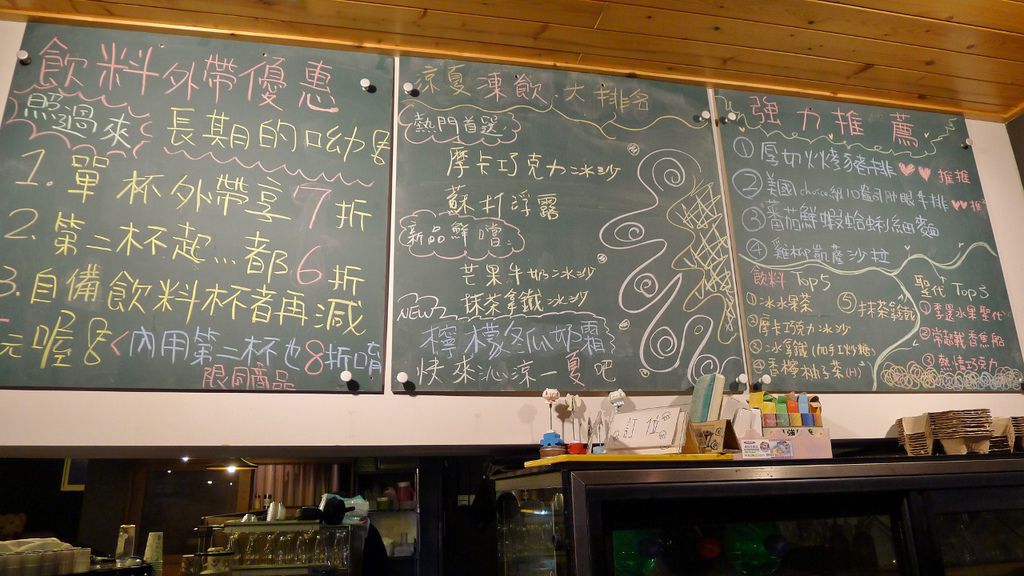 飲料外帶優惠
照過來
長期的呦
1. 單杯外帶享7折
2. 第二杯起...都6折
3. 自備飲料杯者再減
元喔
內用第二杯也8折唷
限同商品
涼夏凍飲.大排名
熱門首選
摩卡巧克力冰沙
蘇打浮露
新品鮮嚐
芒果牛奶冰沙
NEW
抹茶拿鐵冰沙
檸檬冬瓜奶霜
快來沁涼一夏吧
強力推薦
① 厚切火烤豬排 推推
② 美國choice級10盎司肋眼牛排 推
③ 蕃茄鮮蝦蛤蜊細麵
④ 雞柳凱薩沙拉
飲料 Top5
① 冰水果茶
② 摩卡巧克力冰沙
③ 冰拿鐵(加手工炒糖)
④ 香檸柚子茶(H)
⑤ 抹茶拿鐵
聖代 Top3
① 季節水果聖代
② 香蕉船
③ 熱情巧克力
訂位